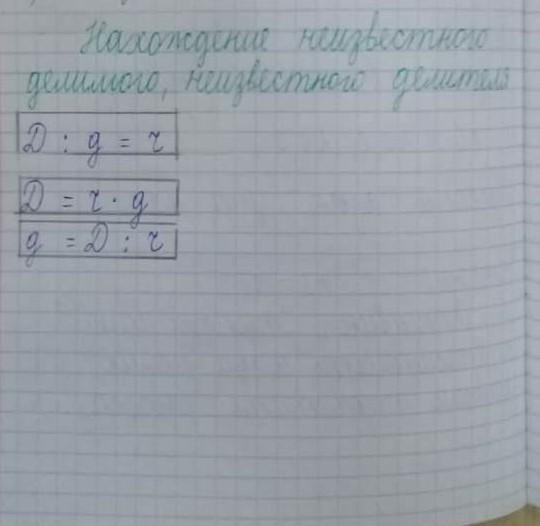 Нахождение неизвестного
делимого, неизвестного делителя
D : g = ч
D = ч · g
g = D : ч